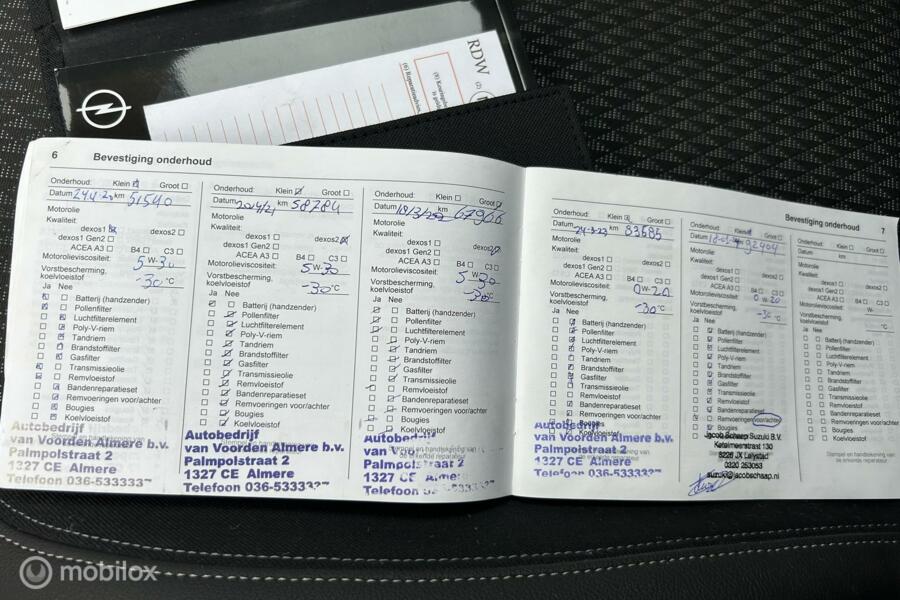 RDW
(2)
(8) Keuringsba
(6) Reparatieadvies
6 Bevestiging onderhoud
Onderhoud: Klein Groot
Datum 24-4-20 km 51540
Motorolie
Kwaliteit:
dexos1
dexos1 Gen2
ACEA A3 B4 C3
Motorolieviscositeit: 5 W-30
Vorstbescherming,
koelvloeistof -30 °C
Ja Nee
Batterij (handzender)
Pollenfilter
Luchtfilterelement
Poly-V-riem
Tandriem
Brandstoffilter
Gasfilter
Transmissieolie
Remvloeistof
Bandenreparatieset
Remvoeringen voor/achter
Bougies
Koelvloeistof
Autobedrijf
van Voorden Almere b.v.
Palmpolstraat 2
1327 CE Almere
Telefoon 036-533333
Onderhoud: Klein Groot
Datum 20/4/21 km 58784
Motorolie
Kwaliteit:
dexos1 dexos2
dexos1 Gen2
ACEA A3 B4 C3
Motorolieviscositeit: 5 W-30
Vorstbescherming,
koelvloeistof -30 °C
Ja Nee
Batterij (handzender)
Pollenfilter
Luchtfilterelement
Poly-V-riem
Tandriem
Brandstoffilter
Gasfilter
Transmissieolie
Remvloeistof
Bandenreparatieset
Remvoeringen voor/achter
Bougies
Koelvloeistof
Autobedrijf
van Voorden Almere b.v.
Palmpolstraat 2
1327 CE Almere
Telefoon 036-5333
Onderhoud: Klein Groot
Datum km 67966
Motorolie
Kwaliteit:
dexos1 dexos2
dexos1 Gen2
ACEA A3 B4 C3
Motorolieviscositeit: 5 W-30
Vorstbescherming,
koelvloeistof -30 °C
Ja Nee
Batterij (handzender)
Pollenfilter
Luchtfilterelement
Poly-V-riem
Tandriem
Brandstoffilter
Gasfilter
Transmissieolie
Remvloeistof
Bandenreparatieset
Remvoeringen voor/achter
Bougies
Koelvloeistof
Stempel en handtekening van
de erkende reparateur
Autobedrijf
van Voorden Almere b.v.
Palmpolstraat 2
1327 CE Almere
Telefoon
Bevestiging onderhoud 7
Onderhoud: Klein Groot
Datum 24-3-23 km 83585
Motorolie
Kwaliteit:
dexos1 dexos2
dexos1 Gen2
ACEA A3 B4 C3
Motorolieviscositeit: 0 W-20
Vorstbescherming,
koelvloeistof -30 °C
Ja Nee
Batterij (handzender)
Pollenfilter
Luchtfilterelement
Poly-V-riem
Tandriem
Brandstoffilter
Gasfilter
Transmissieolie
Remvloeistof
Bandenreparatieset
Remvoeringen voor/achter
Bougies
Koelvloeistof
Autobedrijf
van Voorden Almere b.v.
Palmpolstraat 2
1327 CE Almere
036-53333
Onderhoud: Klein Groot
Datum km 92404
Motorolie
Kwaliteit:
dexos1 dexos2
dexos1 Gen2
ACEA A3 B4 C3
Motorolieviscositeit: 0 W-20
Vorstbescherming,
koelvloeistof °C
Ja Nee
Batterij (handzender)
Pollenfilter
Luchtfilterelement
Poly-V-riem
Tandriem
Brandstoffilter
Gasfilter
Transmissieolie
Remvloeistof
Bandenreparatieset
Remvoeringen voor/achter
Bougies
Jacob Schaap Suzuki B.V.
Ketelmeerstraat 130
8226 JX Lelystad
0320 253053
suzuki@jacobschaap.nl
Onderhoud: Klein Groot
Datum km
Motorolie
Kwaliteit:
dexos1 dexos2
dexos1 Gen2
ACEA A3 B4 C3
Motorolieviscositeit: W-
Vorstbescherming,
koelvloeistof °C
Ja Nee
Batterij (handzender)
Pollenfilter
Luchtfilterelement
Poly-V-riem
Tandriem
Brandstoffilter
Gasfilter
Transmissieolie
Remvloeistof
Bandenreparatieset
Remvoeringen voor/achter
Bougies
Koelvloeistof
Stempel en handtekening van
de erkende reparateur
mobilox